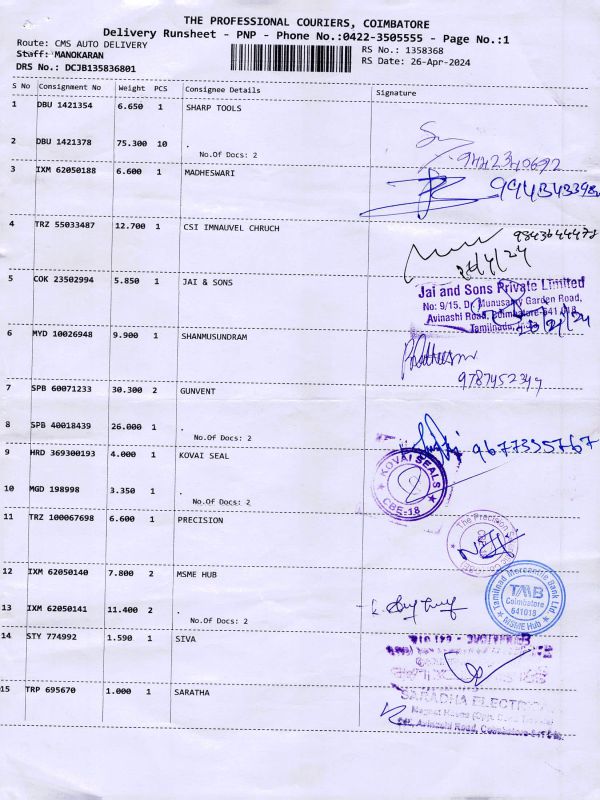 THE PROFESSIONAL COURIERS, COIMBATORE
Delivery Runsheet - PNP - Phone No.:0422-3505555 - Page No.:1
Route: CMS AUTO DELIVERY
RS No.: 1358368
Staff: MANOKARAN
RS Date: 26-Apr-2024
DRS No.: DCJB135836801
S No Consignment No Weight PCS Consignee Details Signature
1 DBU 1421354 6.650 1 SHARP TOOLS
2 DBU 1421378 75.300 10 .
No.Of Docs: 2
9442340692
3 IXM 62050188 6.600 1 MADHESWARI
4 TRZ 55033487 12.700 1 CSI IMNAUVEL CHRUCH
5 COK 23502994 5.850 1 JAI & SONS
Jai and Sons Private Limited
No: 9/15, Dr. Munusamy Garden Road,
Avinashi Road, Coimbatore-641 018
Tamilnadu,
6 MYD 10026948 9.900 1 SHANMUSUNDRAM
9787452347
7 SPB 60071233 30.300 2 GUNVENT
8 SPB 40018439 26.000 1 .
No.Of Docs: 2
9677335767
9 HRD 369300193 4.000 1 KOVAI SEAL
KOVAI SEALS
CBE-18
10 MGD 198998 3.350 1 .
No.Of Docs: 2
11 TRZ 100067698 6.600 1 PRECISION
The Precision
12 IXM 62050140 7.800 2 MSME HUB
Tamilnad Mercantile Bank Ltd
TMB
Coimbatore
641018
MSME Hub
13 IXM 62050141 11.400 2 .
No.Of Docs: 2
14 STY 774992 1.590 1 SIVA
15 TRP 695670 1.000 1 SARATHA
SARADHA ELECTRI
Avinashi Road, Coimbatore-641